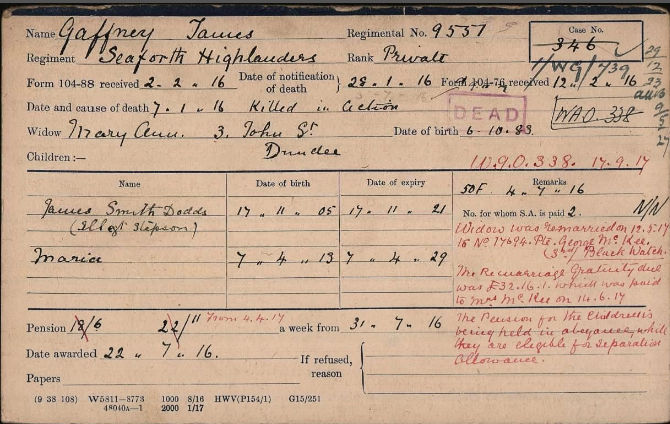 Name Gaffney James Regimental No. 9551 S
Case No.
346
Regiment Seaforth Highlanders Rank Private
1/WG/739
Form 104-88 received 2 . 2 . 16 Date of notification of death } 28 . 1 . 16 Form 104-76 received 12 . 2 . 16
29
12
33
Date and cause of death 7 . 1 . 16 Killed in Action
DEAD
WAO. 338
9/5
27
Widow Mary Ann. 3. John St. Dundee
Date of birth 6.10.83
Children :—
W.G.O.338. 17.9.17
Name Date of birth Date of expiry Remarks
50F 4 . 7 . 16
James Smith Dodds 17 . 11 . 05 17 . 11 . 21
(Illegt Stepson)
No. for whom S.A. is paid 2. N/N
Maria 7 . 4 . 13 7 . 4 . 29
Widow was remarried on 12.5.17
to No 17694. Pte. George Mc Kee.
(3rd) Black Watch.
The Remarriage Gratuity due
was £32.16.1. which was paid
to Mrs Mc Kee on 14.6.17
Pension 18/6 22/11 from 4.4.17 a week from 31 . 7 . 16
The Pension for the Children is
being held in abeyance while
they are eligible for Separation
Allowance.
Date awarded 22 . 7 . 16. If refused, reason
Papers
(9 38 108) W5811—8773 1000 8/16 HWV(P154/1) G15/251
48040A—1 2000 1/17